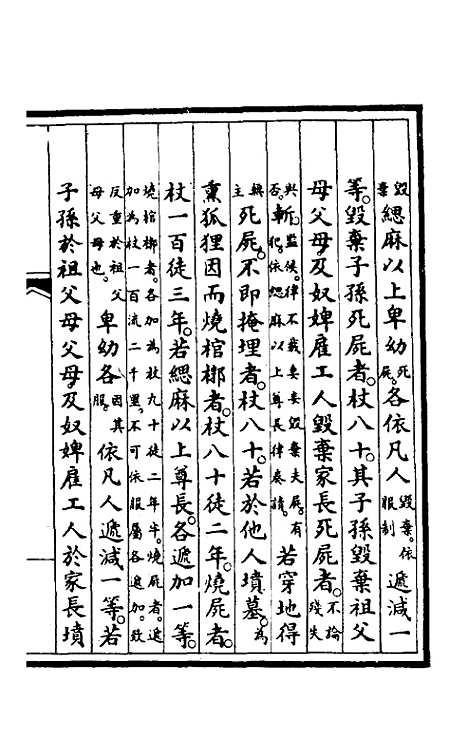 毀棄緦麻以上卑幼死屍各依凡人毀棄依服制遞減一
等毀棄子孫死屍者杖八十其子孫毀棄祖父
母父母及奴婢雇工人毀棄家長死屍者不論殘失
與否斬監候律不載妻妾毀棄夫屍有犯依緦麻以上尊長律奏請若穿地得
無主死屍不即掩埋者杖八十若於他人墳墓為
熏狐狸因而燒棺槨者杖八十徒二年燒屍者
杖一百徒三年若緦麻以上尊長各遞加一等
燒棺槨者各加為杖九十徒二年半燒屍者遞加為杖一百流二千里不可依服屬各遞加致
反重於祖父母父母也卑幼各因其服依凡人遞減一等若
子孫於祖父母父母及奴婢雇工人於家長墳